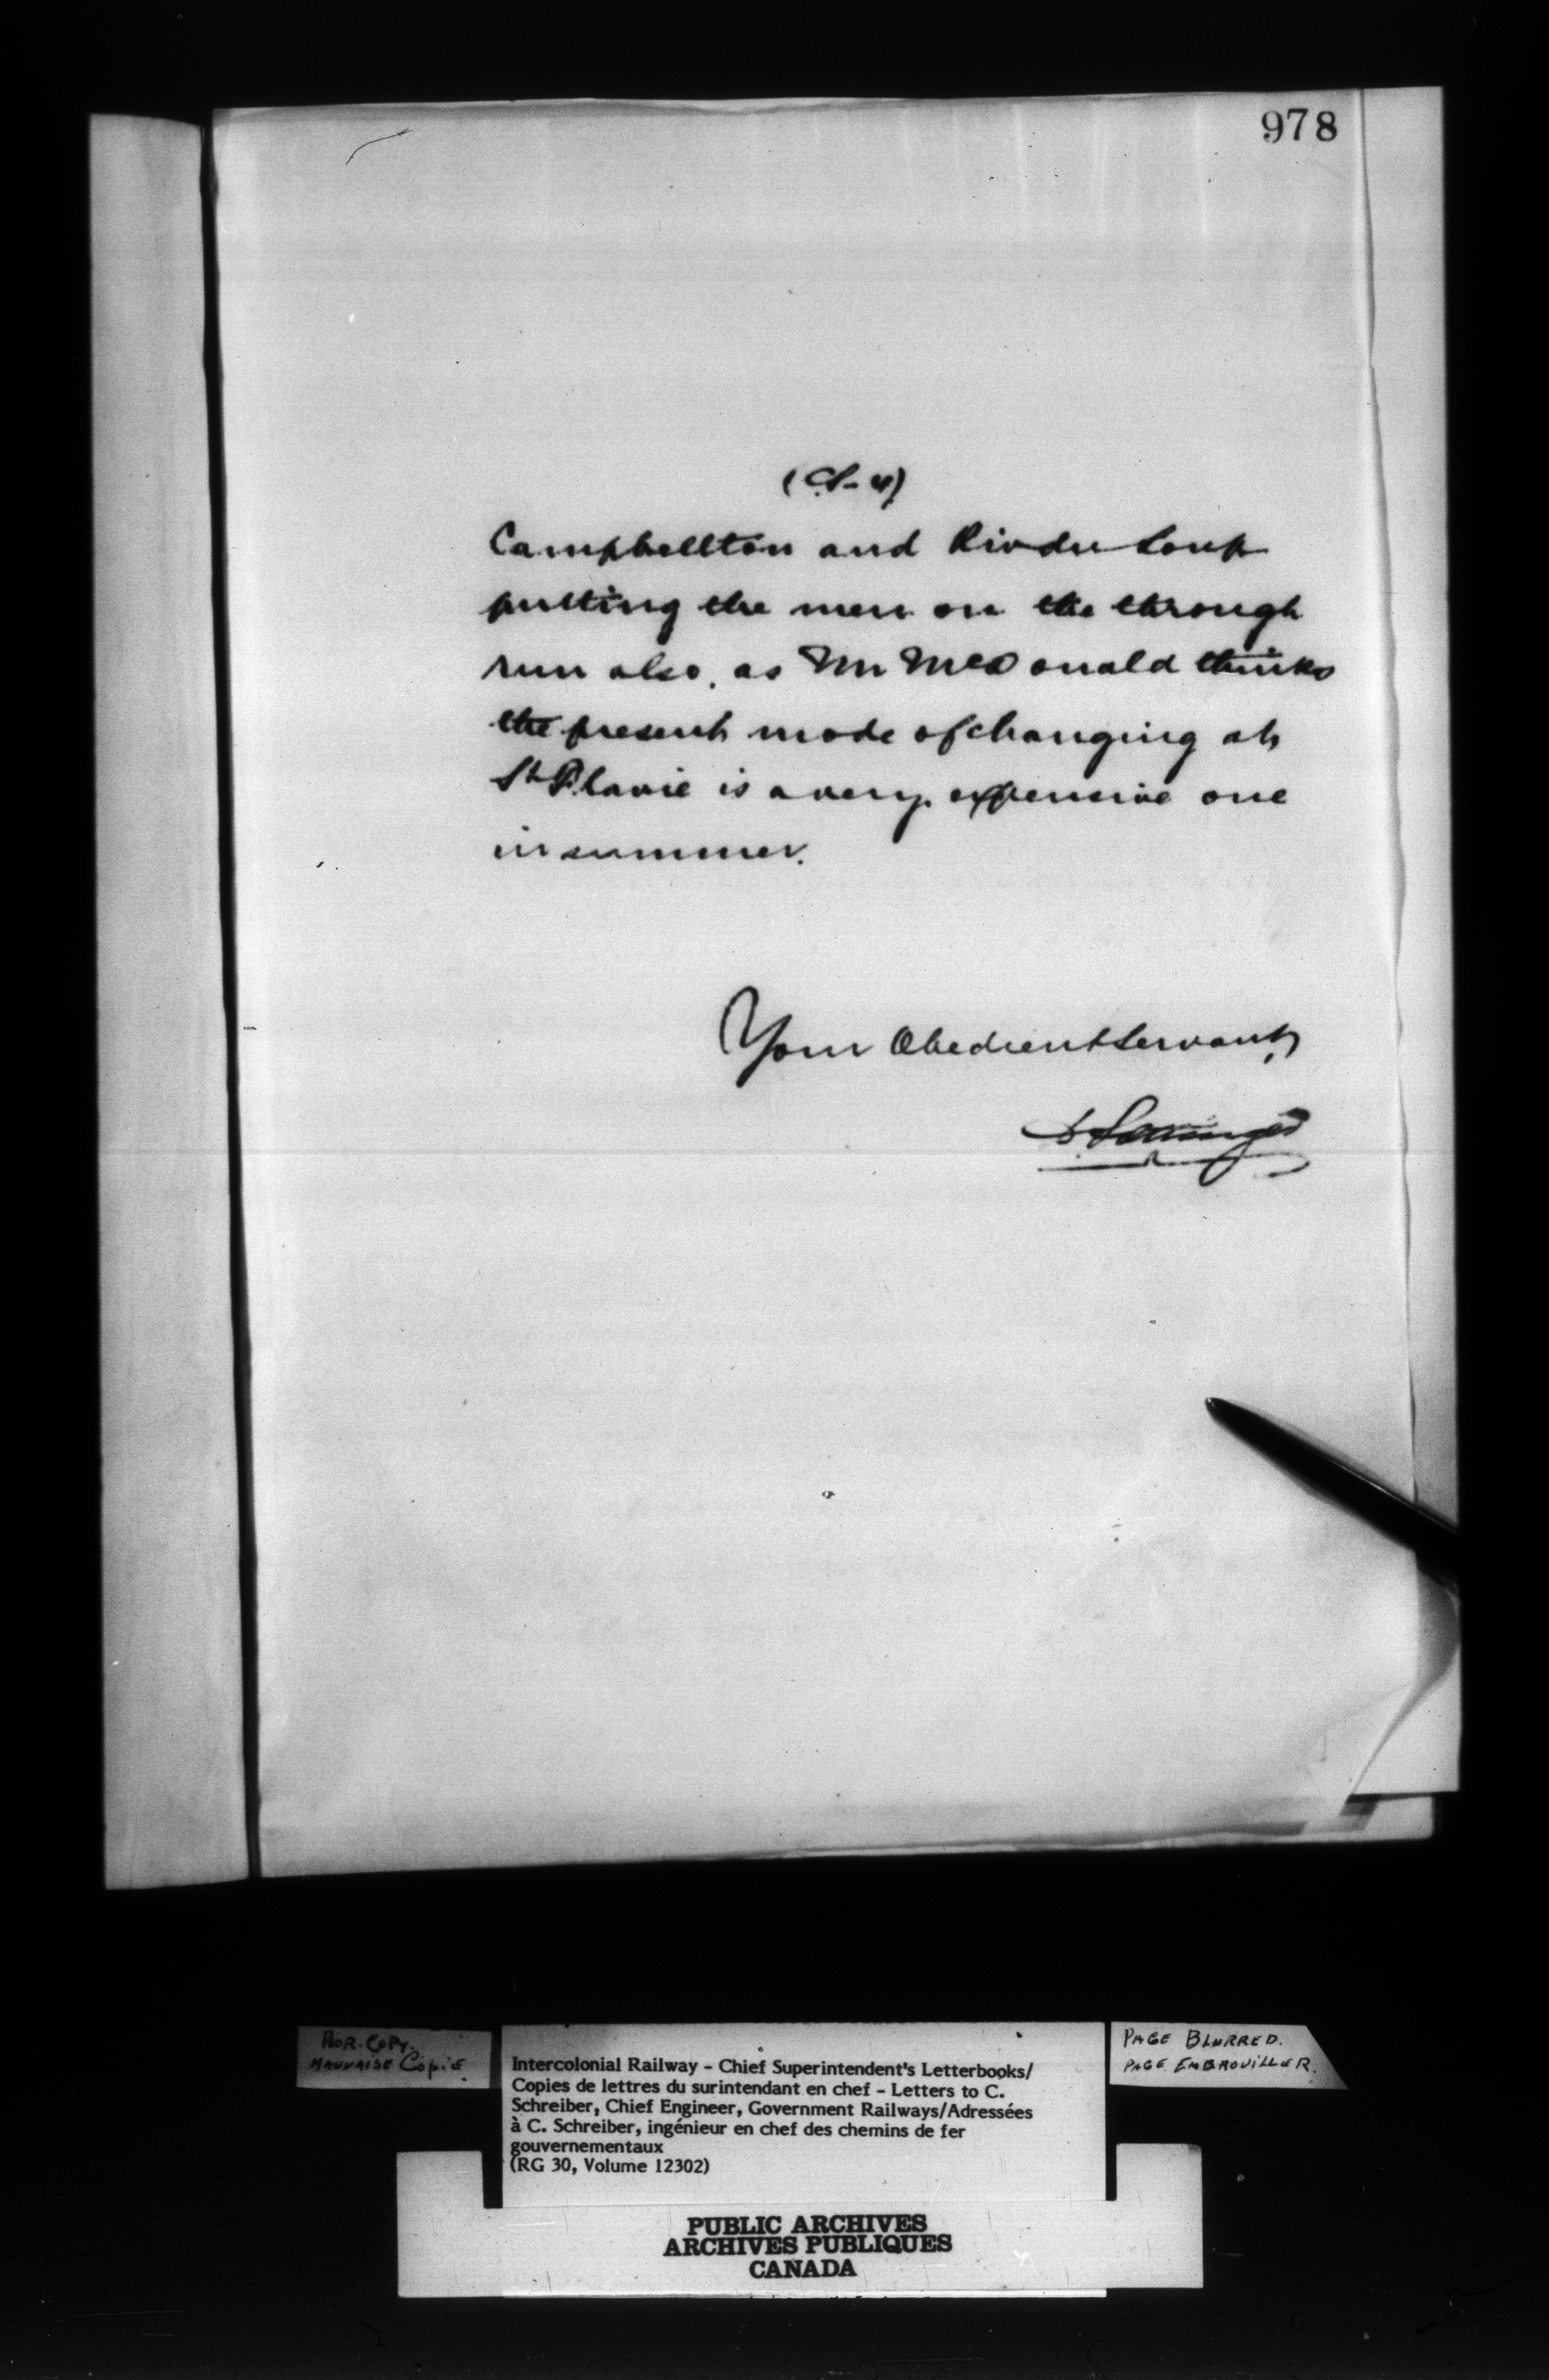 978
(CS-4)
Campbellton and Riv du Loup
putting the men on the through
run also, as Mr McDonald thinks
the present mode of changing at
St Flavie is a very expensive one
in summer.
Your Obedient Servant,
D Pottinger
POOR COPY.
MAUVAISE COPIE.
Intercolonial Railway - Chief Superintendent's Letterbooks/
Copies de lettres du surintendant en chef - Letters to C.
Schreiber, Chief Engineer, Government Railways/Adressées
à C. Schreiber, ingénieur en chef des chemins de fer
gouvernementaux
(RG 30, Volume 12302)
PAGE BLURRED.
PAGE EMBROUILLER.
PUBLIC ARCHIVES
ARCHIVES PUBLIQUES
CANADA